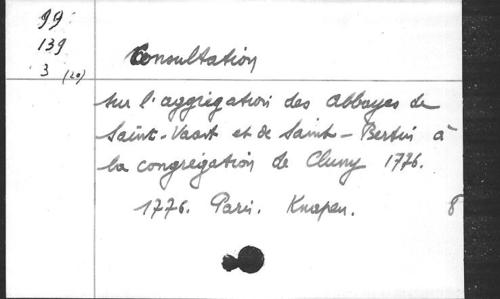 99
139
3 (20)
Consultation
sur l'aggrégation des abbayes de
Saint-Vaast et de Saint-Bertin à
la congrégation de Cluny 1776.
1776. Paris. Knapen. 8